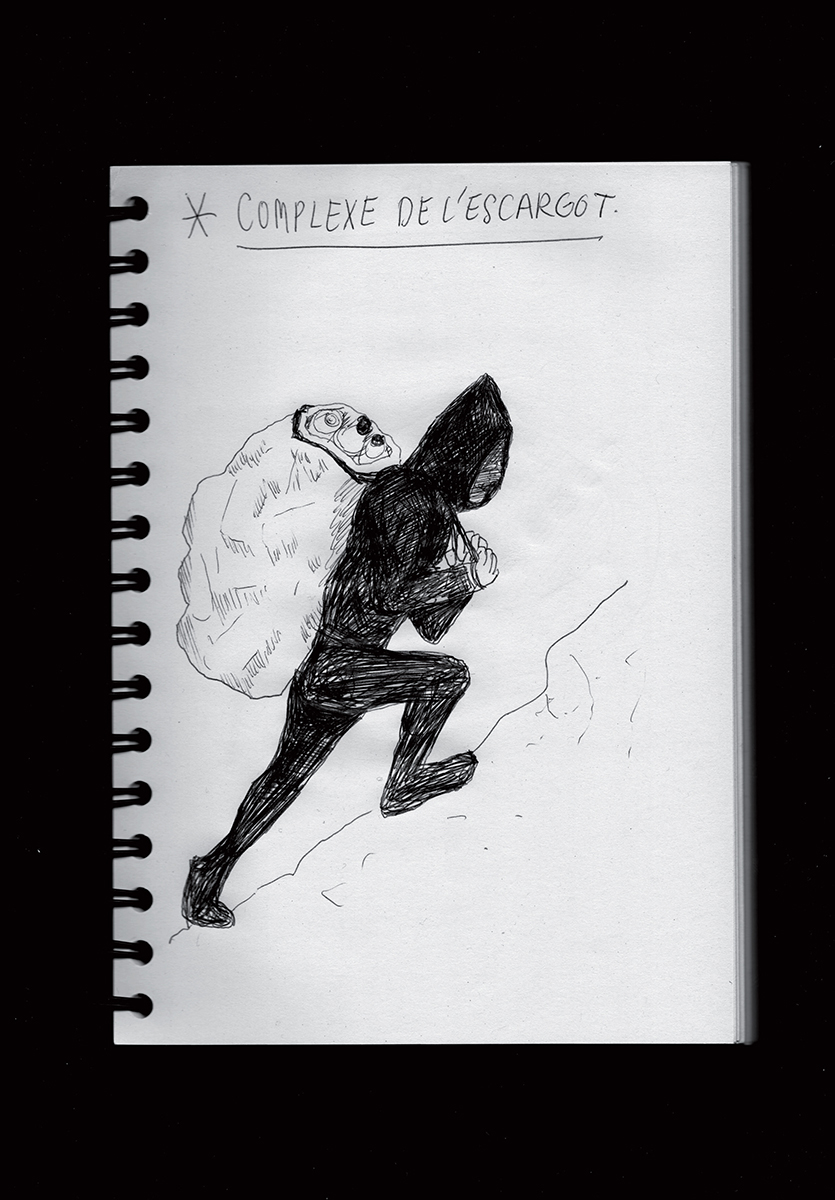 * COMPLEXE DE L'ESCARGOT.